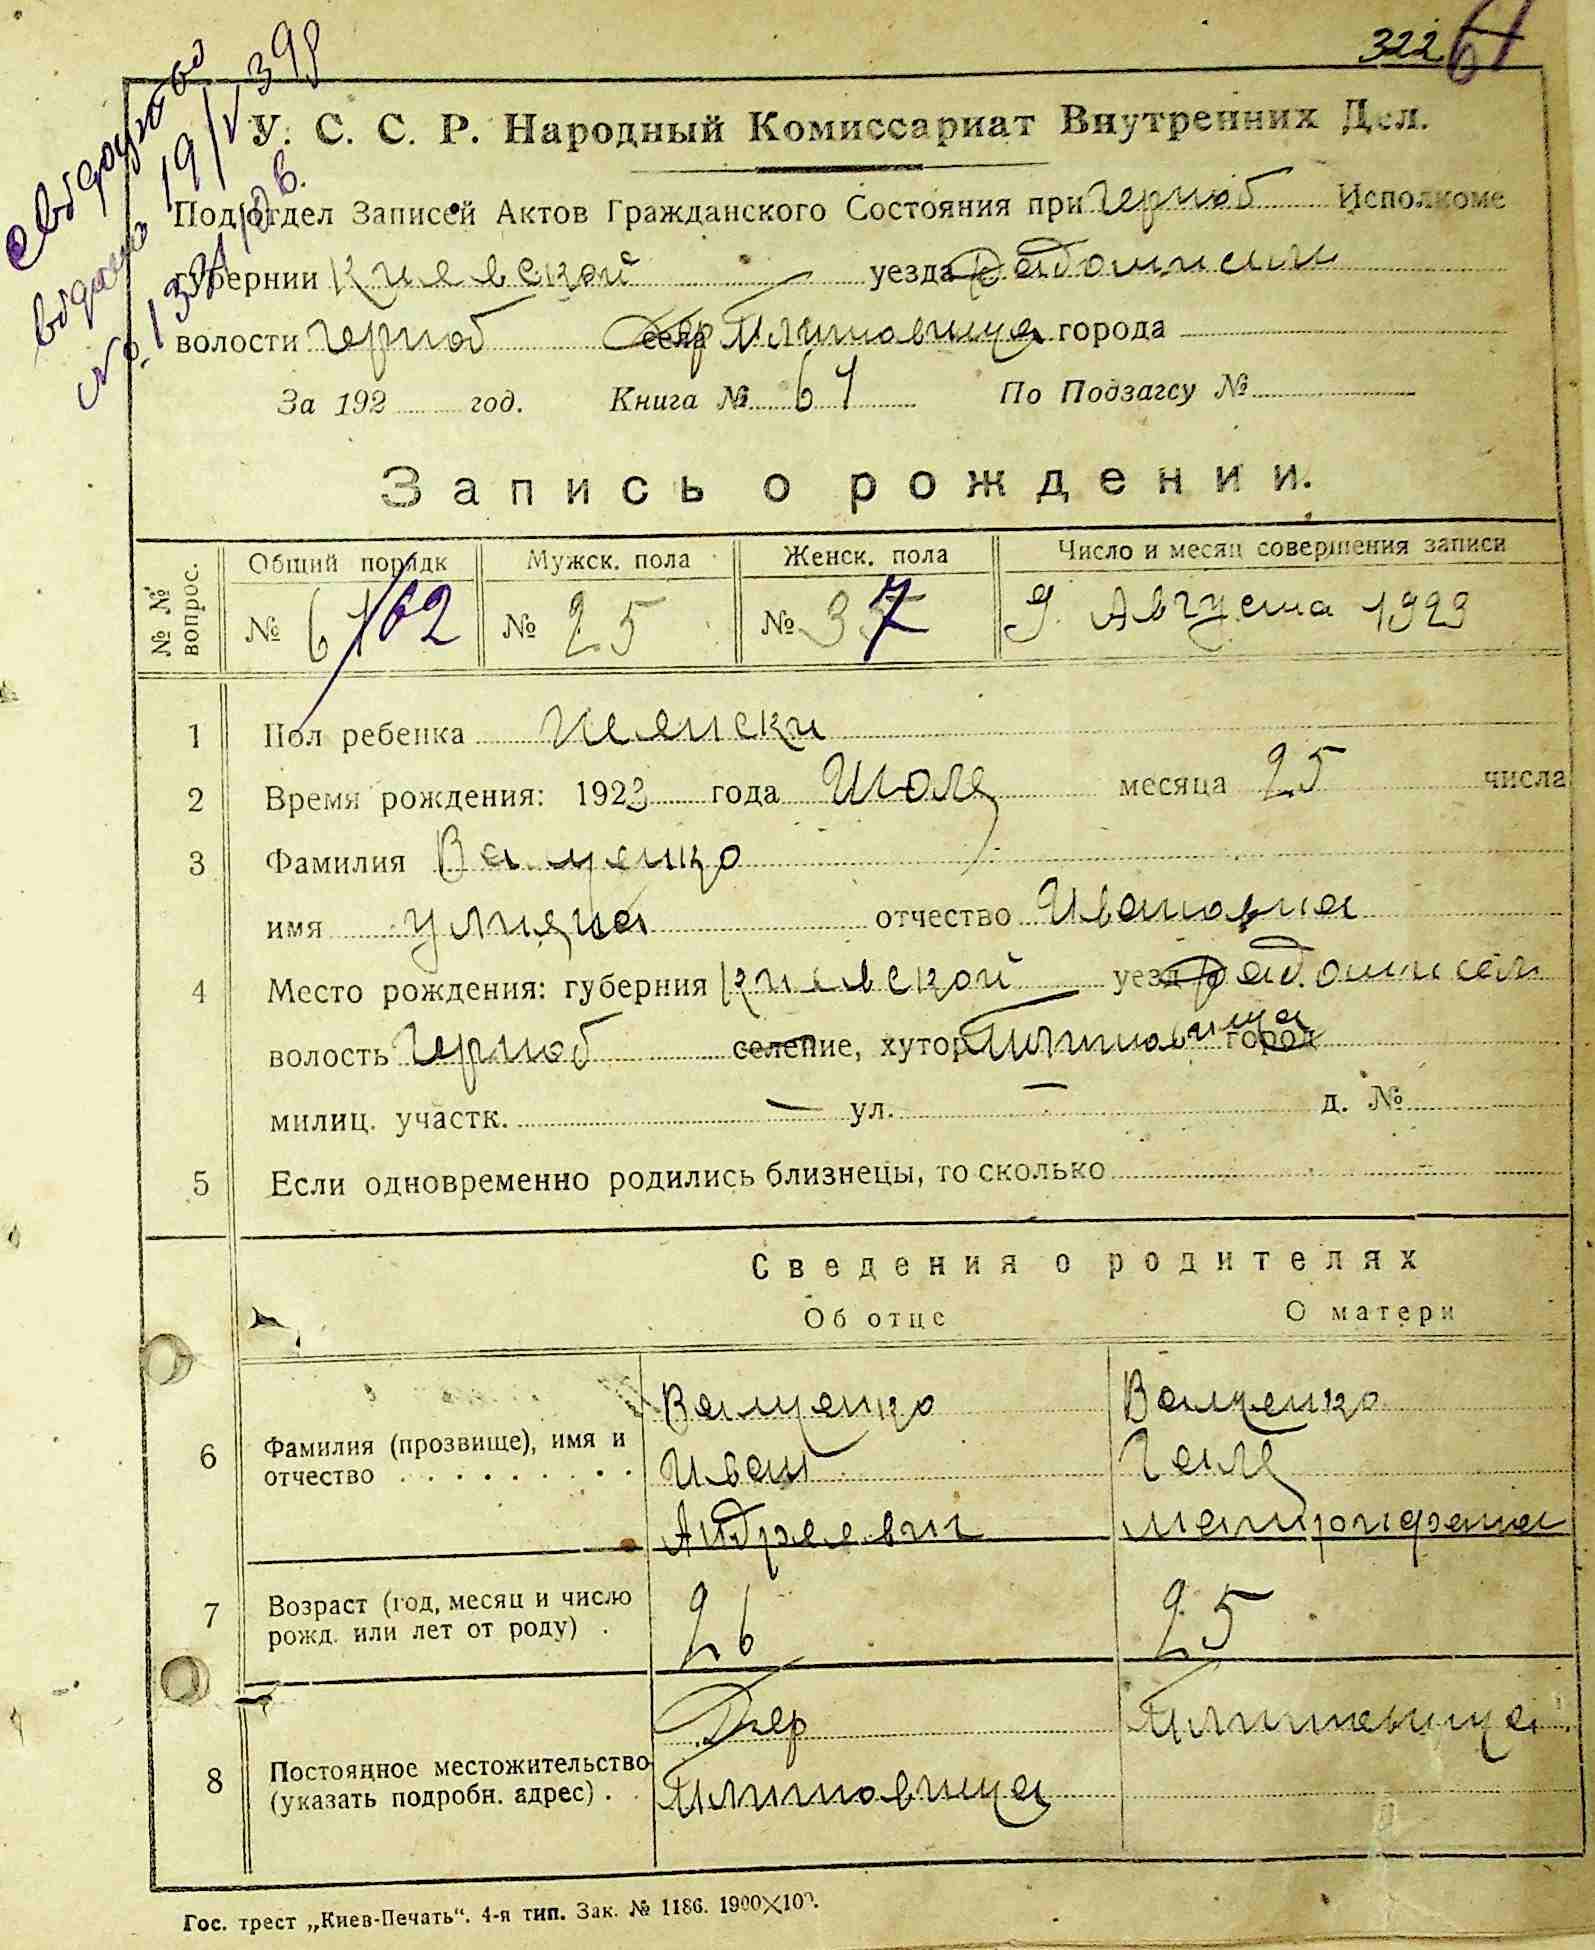 322 61
У. С. С. Р. Народный Комиссариат Внутренних Дел.
Подотдел Записей Актов Гражданского Состояния при Черноб Исполкоме
губернии Киевской уезда Радомысл
волости Черноб села дер города
За 192 год. Книга № 61 По Подзагсу №
Запись о рождении.
№№ вопрос. Общий порядк Мужск. пола Женск. пола Число и месяц совершения записи
№ 61/62 № 25 № 37 9 Августа 1923
1 Пол ребенка Женски
2 Время рождения: 1923 года Июля месяца 25 числа
3 Фамилия Ващенко
имя Улияна отчество Ивановна
4 Место рождения: губерния Киевской уезд Радомысл
волость Черноб селение, хутор город
милиц. участк. — ул. — д. №
5 Если одновременно родились близнецы, то сколько
Сведения о родителях
Об отце О матери
6 Фамилия (прозвище), имя и отчество Ващенко Иван Андреевич Ващенко
7 Возраст (год, месяц и число рожд. или лет от роду) 26 25
8 Постоянное местожительство (указать подробн. адрес) Дер
Гос. трест „Киев-Печать“. 4-я тип. Зак. № 1186. 1900×100.
свідоцтво
видано 19/V 39р